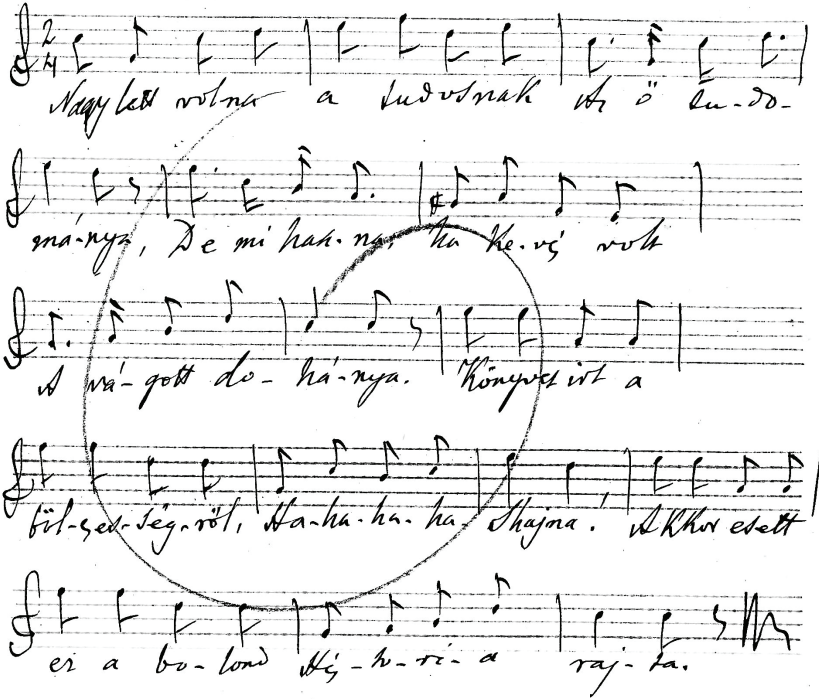 Nagy lett volna a tudósnak Az ő tu-do-
má-nya, De mi hak-na, ha ke-vés volt
A vá-gott do-há-nya. Könyvet írt a
böl-cses-ség-ről, Ha-ha-ha-ha Shajna! Akkor esett
ez a bo-lond His-tó-ri-a raj-ta.